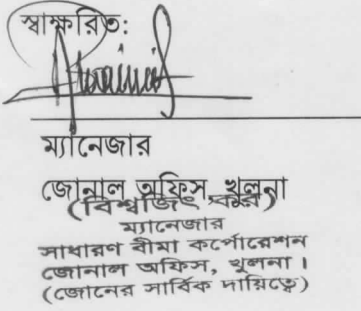 স্বাক্ষরিত:
ম্যানেজার
জোনাল অফিস, খুলনা
(বিশ্বজিৎ কর)
ম্যানেজার
সাধারণ বীমা কর্পোরেশন
জোনাল অফিস, খুলনা।
(জোনের সার্বিক দায়িত্বে)